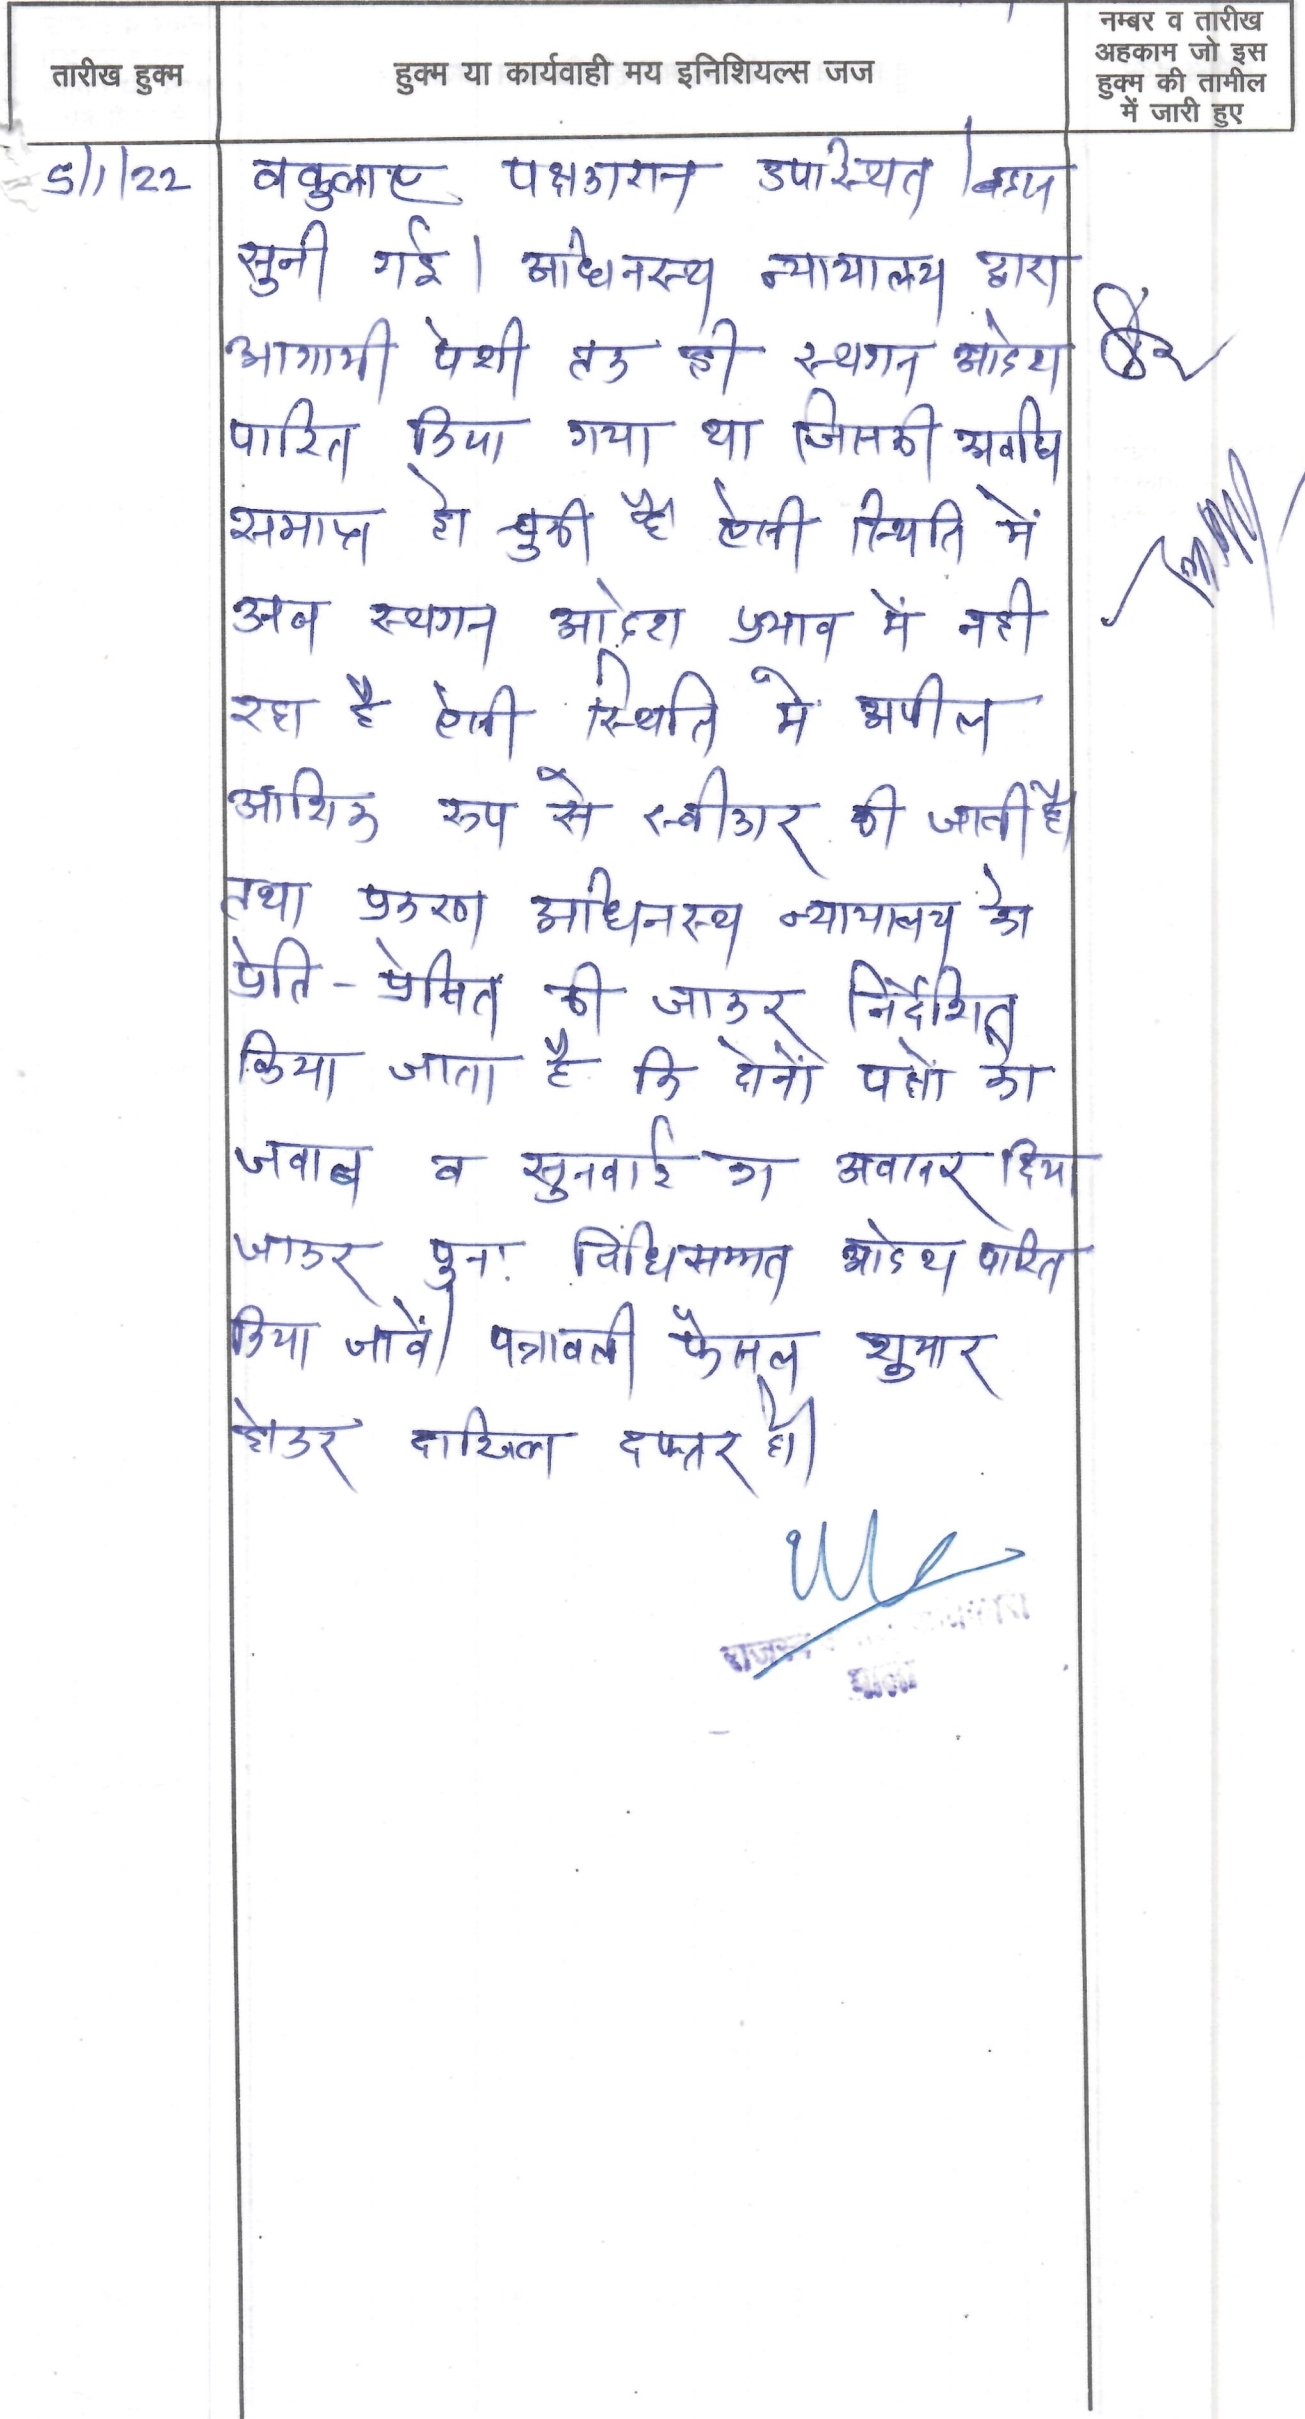 तारीख हुक्म
हुक्म या कार्यवाही मय इनिशियल्स जज
नम्बर व तारीख
अहकाम जो इस
हुक्म की तामील
में जारी हुए
5/1/22
वकुलाए पक्षकारान उपस्थित। बहस
सुनी गई। अधिनस्थ न्यायालय द्वारा
आगामी पेशी तक ही स्थगन आदेश
पारित किया गया था जिसकी अवधि
समाप्त हो चुकी है ऐसी स्थिति में
अब स्थगन आदेश प्रभाव में नही
रहा है ऐसी स्थिति मे अपील
आशिक रूप से स्वीकार की जाती है।
तथा प्रकरण अधिनस्थ न्यायालय को
प्रेति - प्रेषित की जाकर निर्देशित
किया जाता है कि दोनों पक्षों को
जवाब व सुनवाई का अवसर दिया
जाकर पुनः विधिसम्मत आदेश पारित
किया जावें। पत्रावली फैसल शुमार
होकर दाखिल दफ्तर हो।